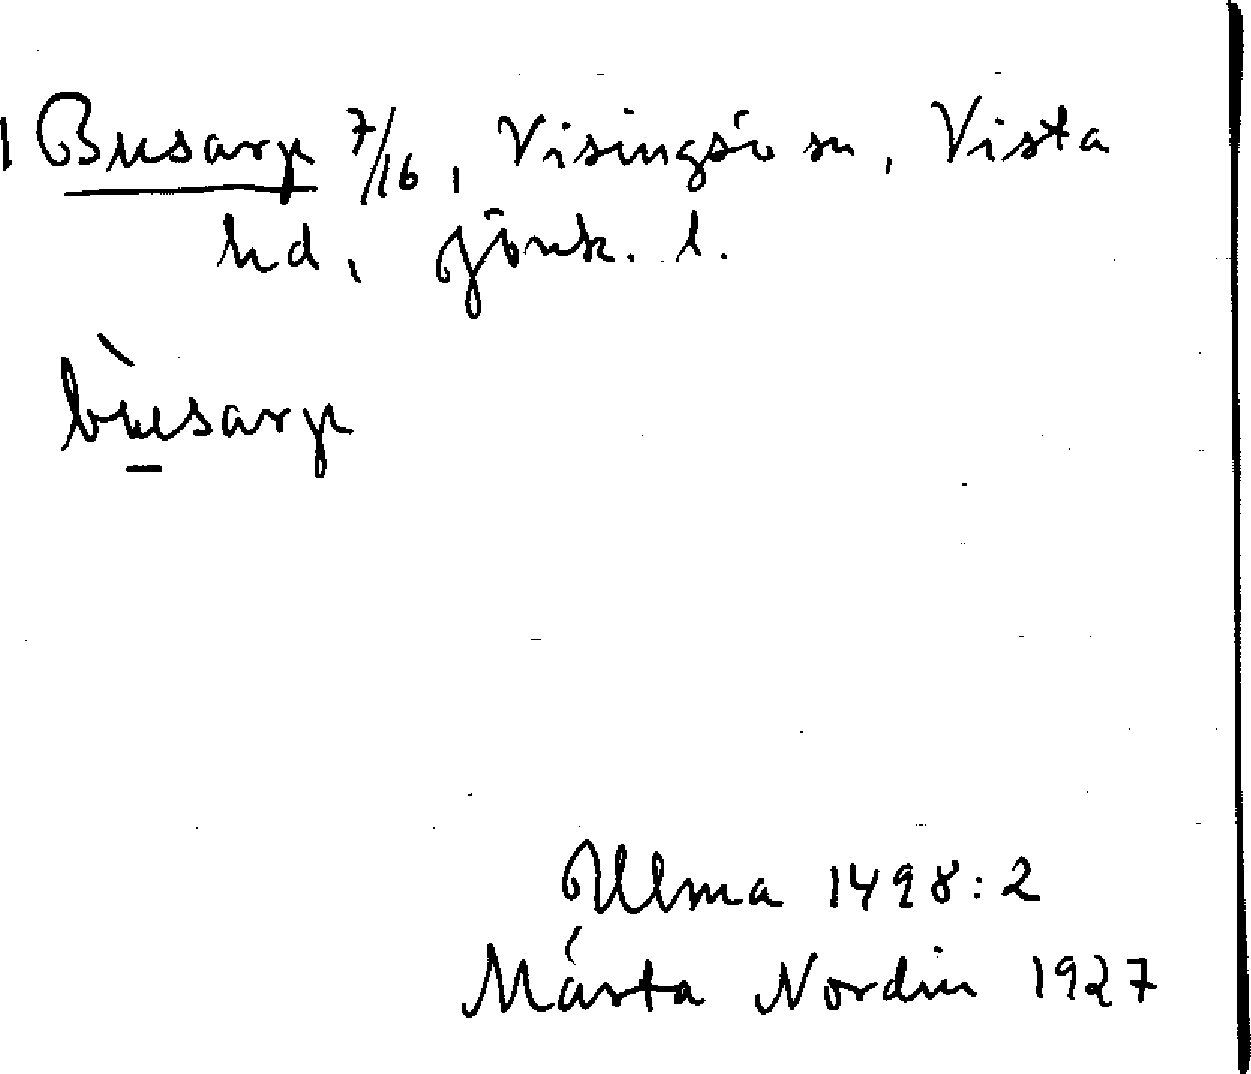 Busarp 7/16, Visingsö sn, Vista
hd, Jönk. l.
bùsarp
Ulma 1498:2
Märta Nordin 1927